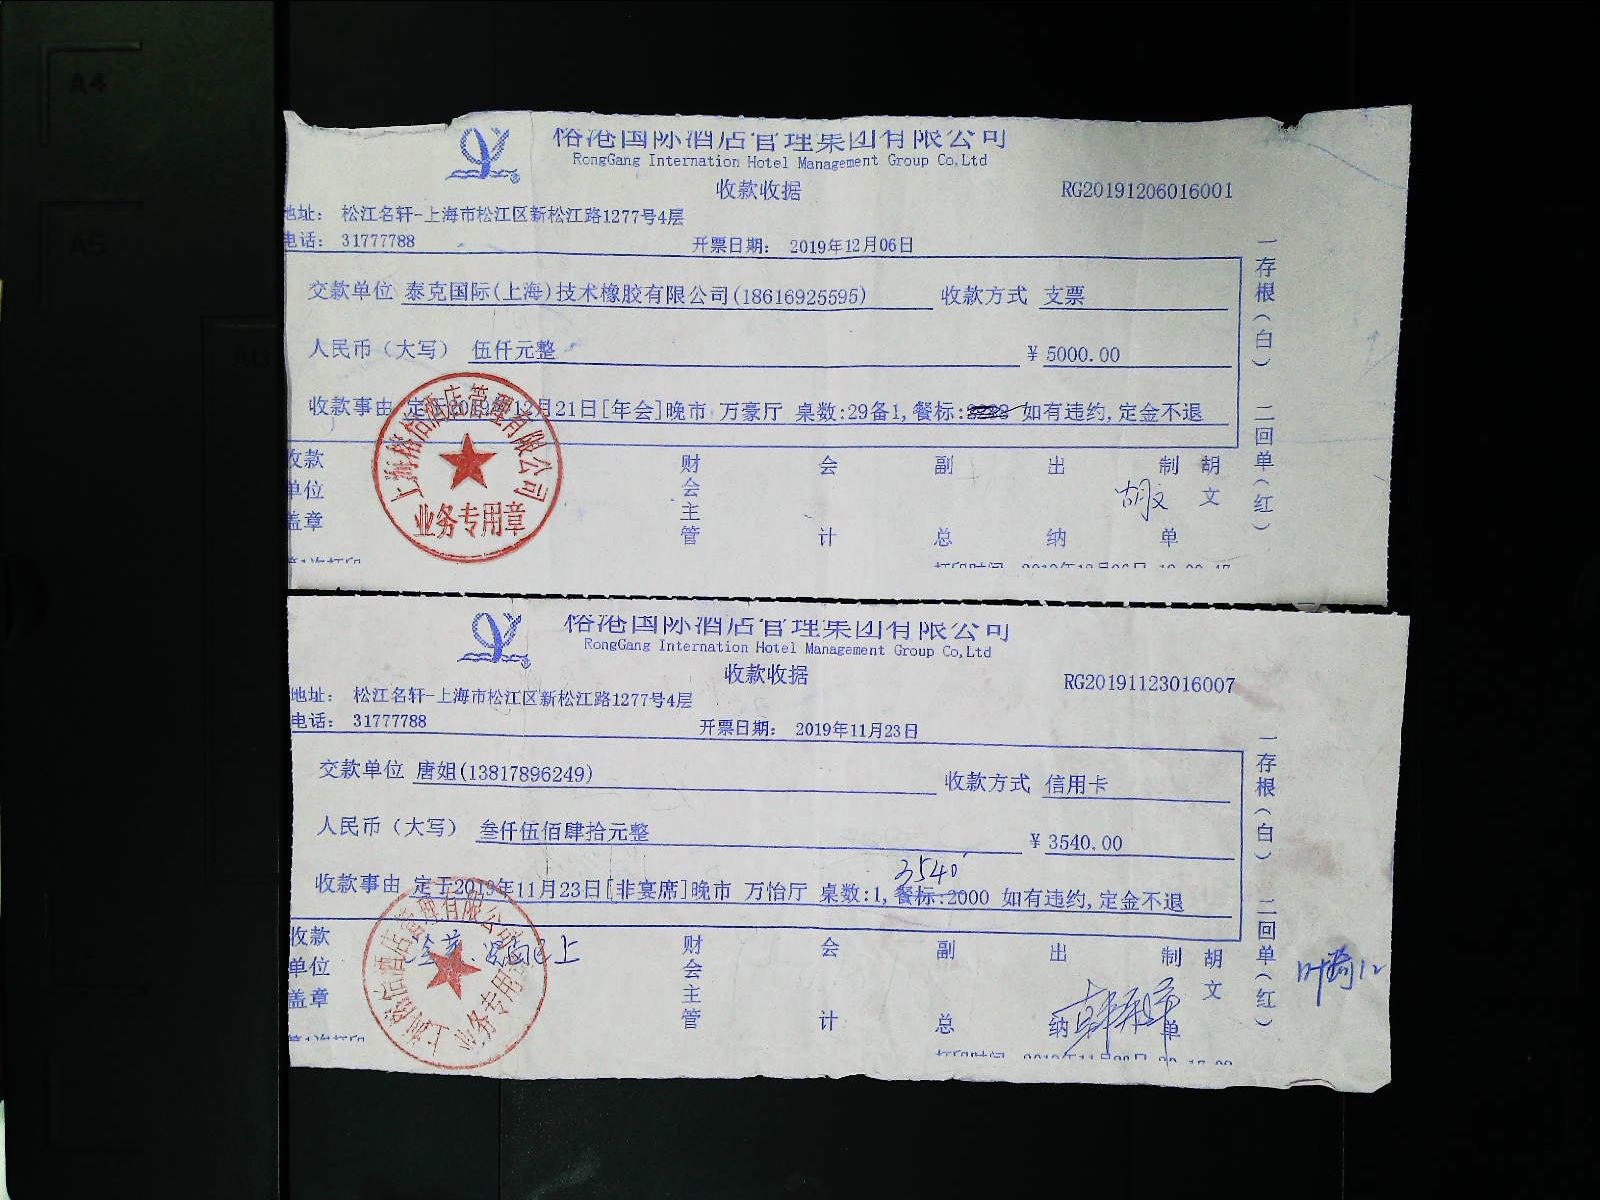 A4
A5
榕港国际酒店管理集团有限公司
RongGang Internation Hotel Management Group Co,Ltd
收款收据
RG20191206016001
地址: 松江名轩-上海市松江区新松江路1277号4层
电话: 31777788
开票日期: 2019年12月06日
交款单位 泰克国际(上海)技术橡胶有限公司(18616925595) 收款方式 支票
人民币(大写) 伍仟元整 ¥ 5000.00
收款事由 定于2019年12月21日[年会]晚市 万豪厅 桌数:29备1,餐标: 如有违约,定金不退
收款单位盖章
财会主管
会计
副总
出纳
制单
胡文
胡文
一存根(白) 二回单(红)
业务专用章
榕港国际酒店管理集团有限公司
RongGang Internation Hotel Management Group Co,Ltd
收款收据
RG20191123016007
地址: 松江名轩-上海市松江区新松江路1277号4层
电话: 31777788
开票日期: 2019年11月23日
交款单位 唐姐(13817896249) 收款方式 信用卡
人民币(大写) 叁仟伍佰肆拾元整 ¥ 3540.00
3540
收款事由 定于2019年11月23日[非宴席]晚市 万怡厅 桌数:1,餐标:2000 如有违约,定金不退
收款单位盖章
财会主管
会计
副总
出纳
制单
胡文
一存根(白) 二回单(红)
业务专用章